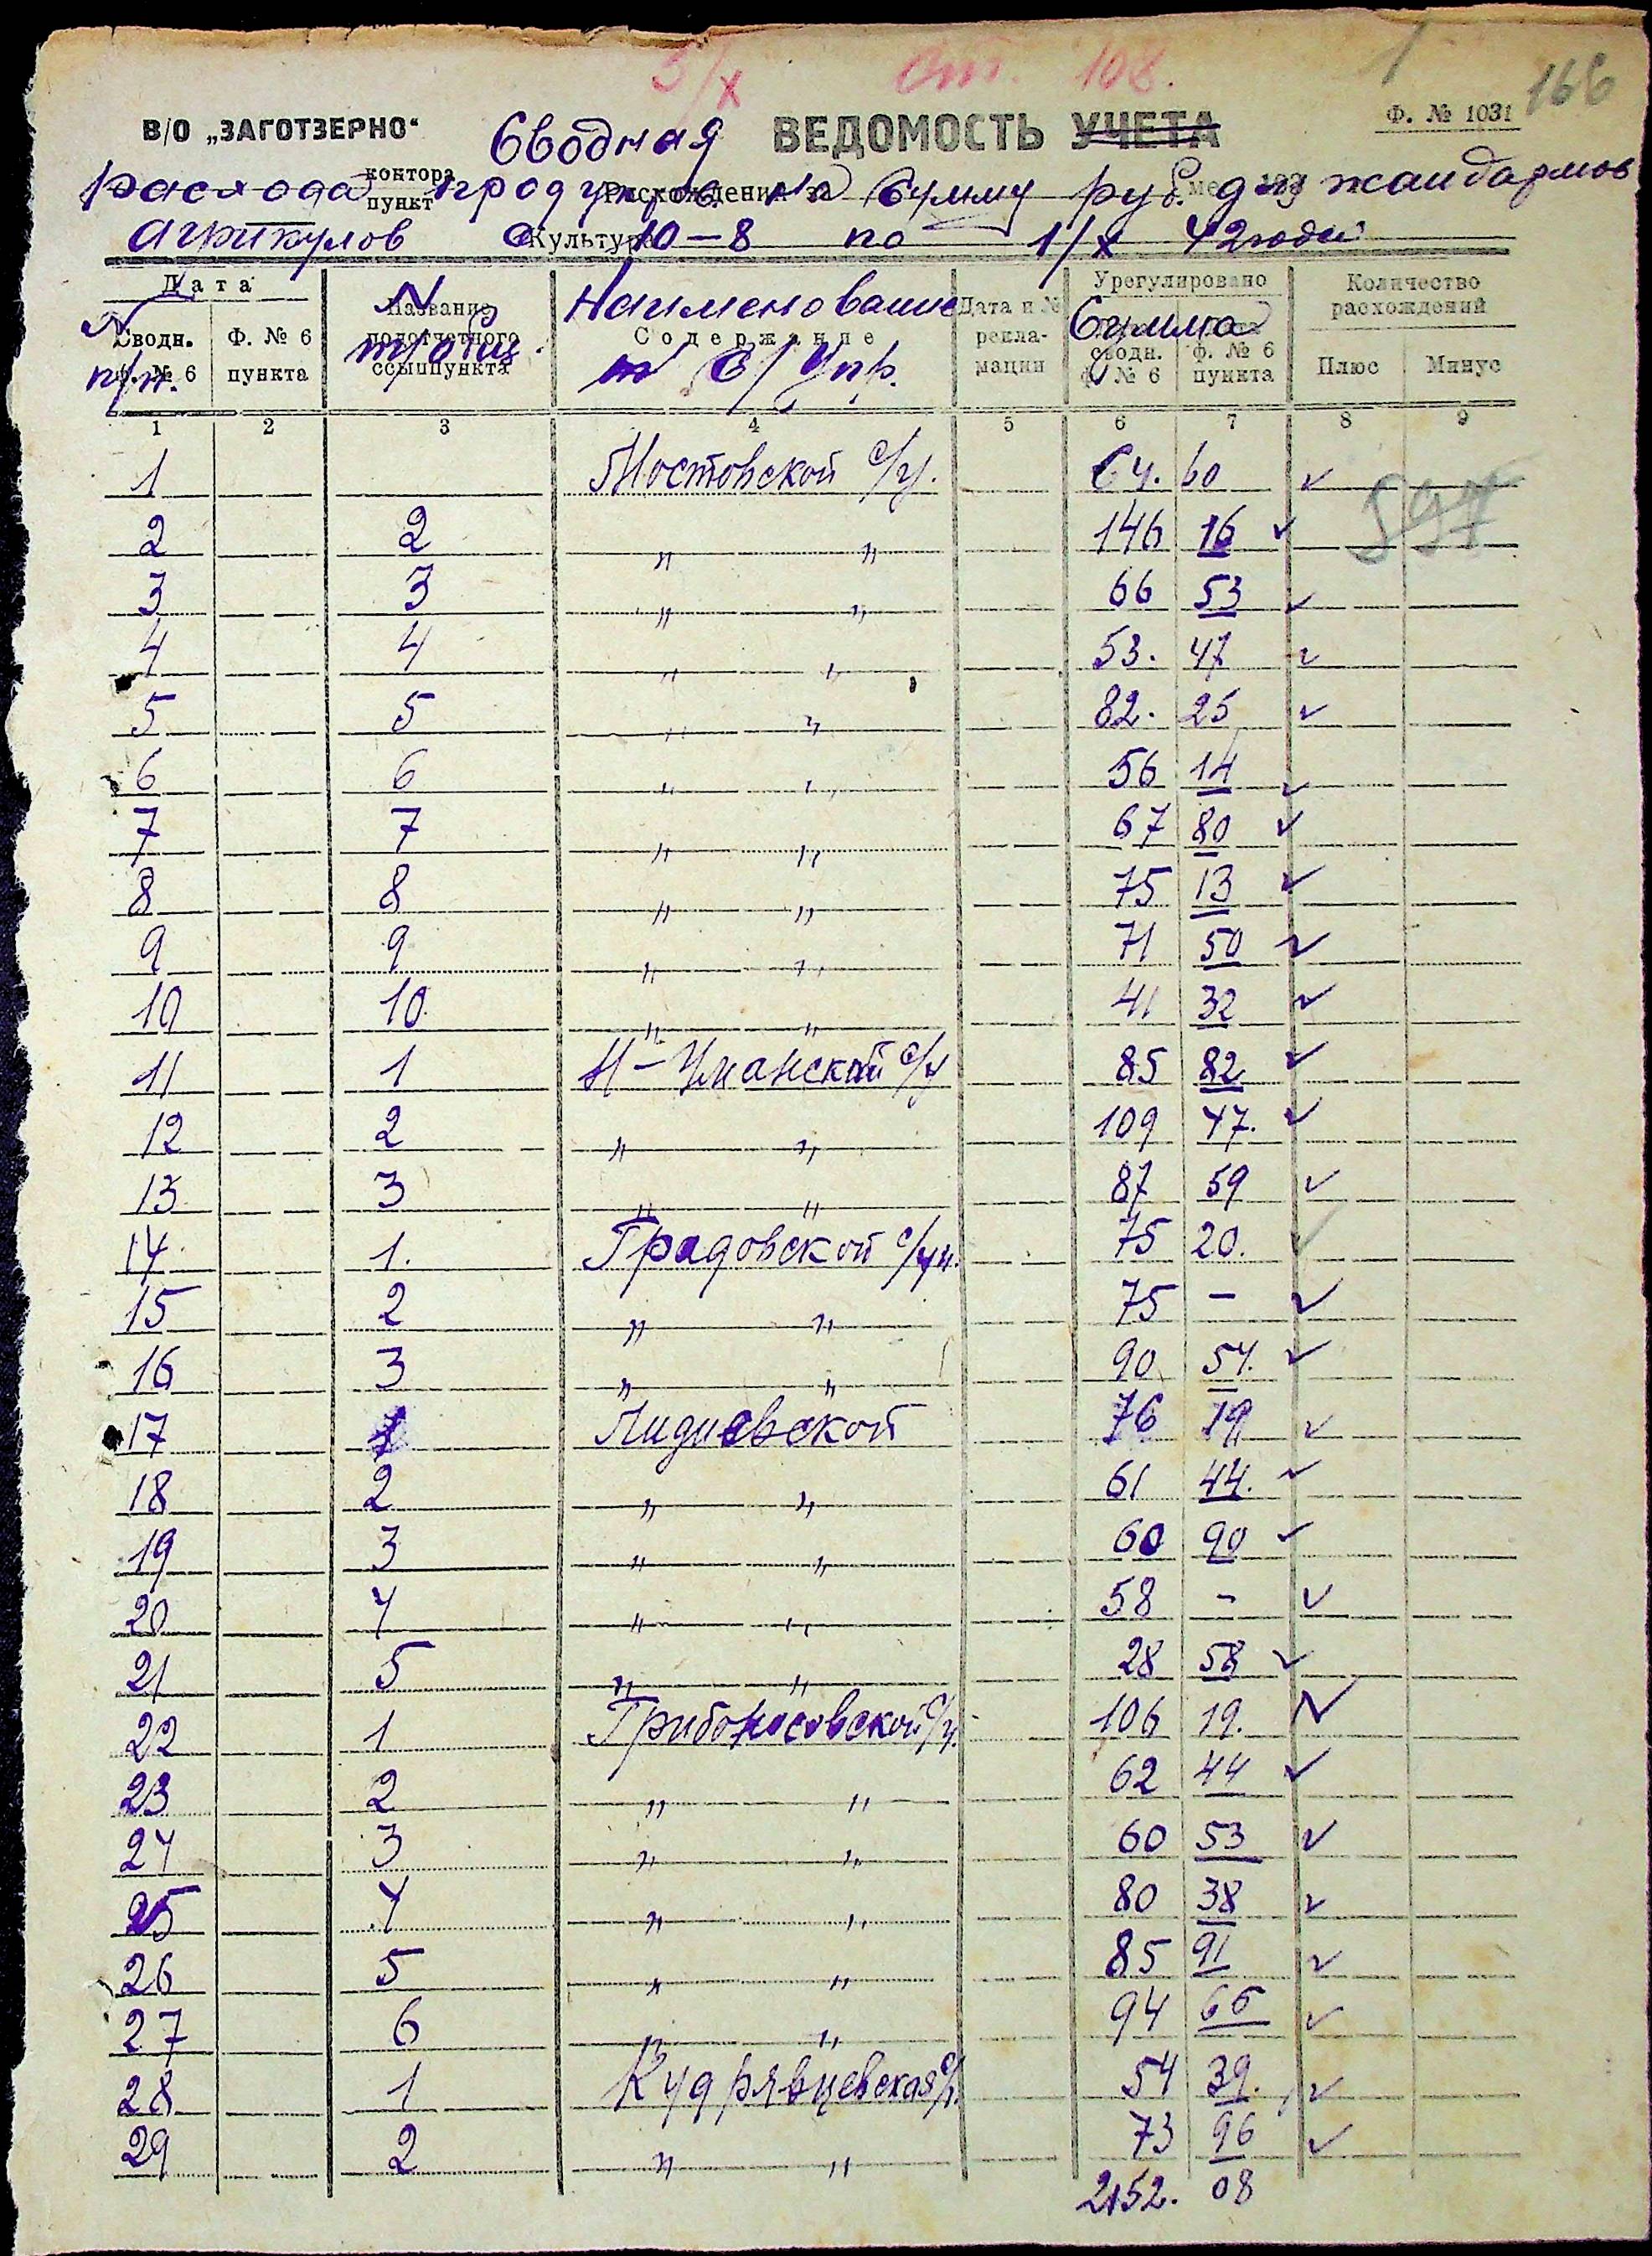 3/X ст. 108. 1 166
В/О „ЗАГОТЗЕРНО“ Сводная ВЕДОМОСТЬ УЧЕТА Ф. № 1031
контора
расхода пункт продуктов Расхождения за на сумму руб. для жандармов
агрикулов с Культура 10-8 по 1/X 42 года
Дата № Название Наименование Дата и № Урегулировано Количество расхождений
№ Сводн. Ф. № 6 подотчетного Содержание рекла- Сумма сводн. ф. № 6 Плюс Минус
п/п. ф. № 6 пункта ссыппункта С/Упр. мации ф. № 6 пункта
1 2 3 4 5 6 7 8 9
1 Мостовской с/у. 64. 60 ✓
597
2 2 „ „ 146 16 ✓
3 3 „ „ 66 53 ✓
4 4 „ „ 53. 47 ✓
5 5 „ „ 82. 25 ✓
6 6 „ „ 56 14 ✓
7 7 „ „ 67 80 ✓
8 8 „ „ 75 13 ✓
9 9 „ „ 71 50 ✓
10 10. „ „ 41 32 ✓
11 1 Н-Уманской с/у 85 82 ✓
12 2 „ „ 109 47. ✓
13 3 „ „ 87 59 ✓
14 1. Градовской с/уп. 75 20. ✓
15 2 „ „ 75 – ✓
16 3 „ „ 90 54. ✓
17 1 Лидиевской 76 19 ✓
18 2 „ „ 61 44. ✓
19 3 „ „ 60 90 ✓
20 4 „ „ 58 – ✓
21 5 „ „ 28 58 ✓
22 1 Грибоносовской с/у. 106 19. ✓
23 2 „ „ 62 44 ✓
24 3 „ „ 60 53 ✓
25 4 „ „ 80 38 ✓
26 5 „ „ 85 91 ✓
27 6 „ „ 94 66 ✓
28 1 Кудрявцевская с/у. 54 39. ✓
29 2 „ „ 73 96 ✓
2152. 08